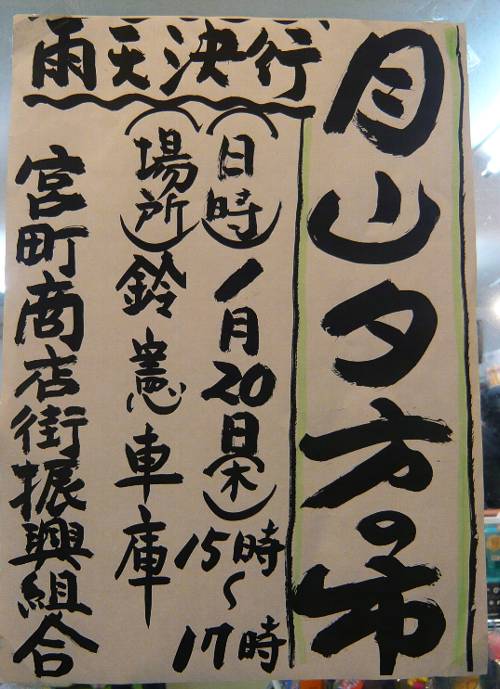 月山夕方の市
雨天決行
(日時)1月20日(木)15時~17時
(場所)鈴憲車庫
宮町商店街振興組合